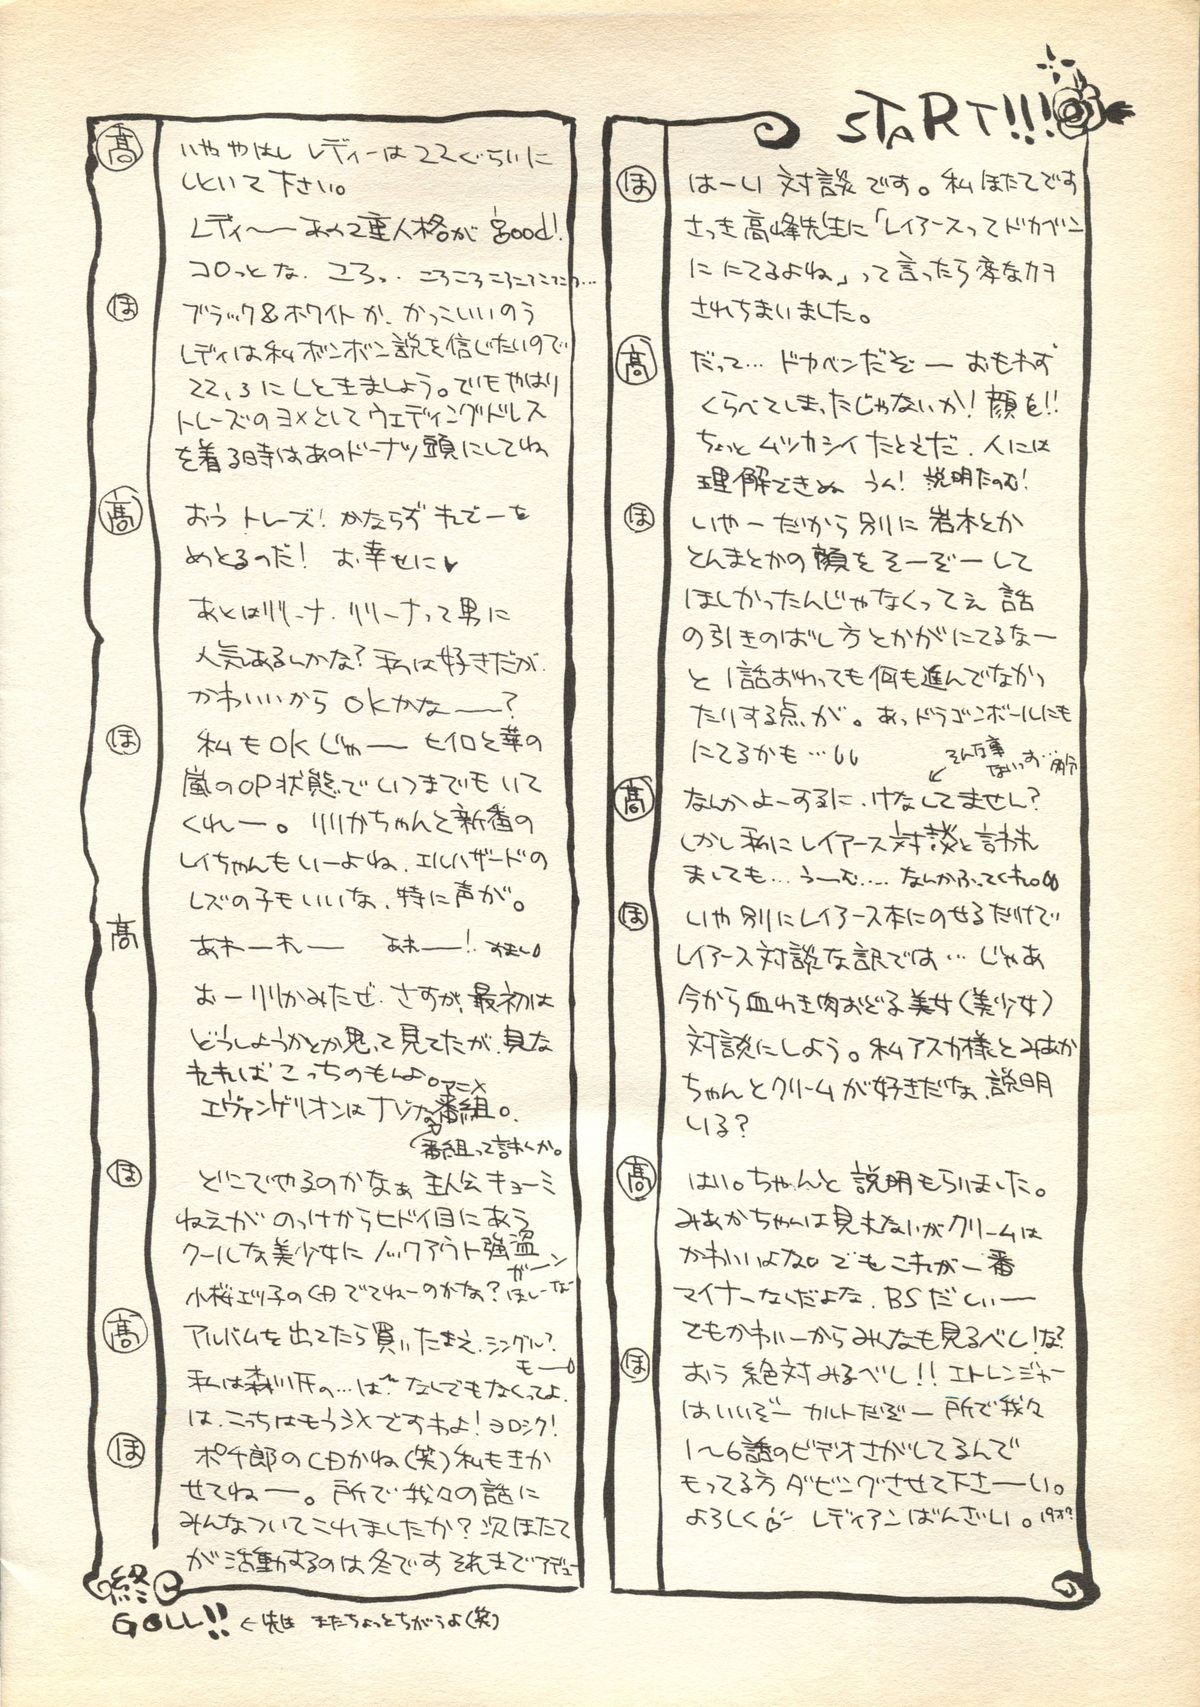 START!!!
ほ
はーい 対談です。私ほたてです
さっき高峰先生に「レイアースってドカベン
ににてるよね」って言ったら変なカオ
されちまいました。
高
だって… ドカベンだぞー おもわず
くらべてしまったじゃないか!顔を!!
ちょっとムツカシイたとえだ、人には
理解できぬ うん! 説明たのむ!
ほ
いやーだから別に岩木とか
とんまとかの顔をそーぞーして
ほしかったんじゃなくってぇ 話
の引きのばし方とかがにてるなー
と1話おわっても何も進んでなかっ
たりする点が。あっドラゴンボールにも
にてるかも…
そんな事
ないっす
高
なんかよーするに、けなしてません?
しかし私にレイアース対談と言われ
ましても… うーむ…. なんかふってくれ。
ほ
いや別にレイアース本にのせるだけで
レイアース対談な訳では… じゃあ
今から血わき肉おどる美女(美少女)
対談にしよう。私アスカ様とみあか
ちゃんとクリームが好きだな、説明
いる?
高
はい。ちゃんと説明もらいました。
みあかちゃんは見えないがクリームは
かわいいよな。でもこれが一番
マイナーなんだよな、BSだしぃー
でもかわいーからみんなも見るべし!な?
ほ
おう 絶対みるべし!! エトレンジャー
はいいぞー カルトだぞー 所で我々
1〜6話のビデオさがしてるんで
もってる方ダビングさせて下さーい。
よろしく レディアンばんざい。
高
いややはし レディーは22ぐらいに
しといて下さい。
レディ〜 あの2重人格が good!
コロっとな、ころっ、ころころころころころ…
ほ
ブラック&ホワイトか、かっこいいのう
レディは私ボンボン説を信じたいので
22,3にしときましょう。でもやはり
トレーズのヨメとしてウェディングドレス
を着る時はあのドーナツ頭にしてね
高
おうトレーズ! かならずれでーを
めとるのだ! お幸せに♥
あとはリリーナ、リリーナって男に
人気あるんかな?私は好きだが、
かわいいから OKかな〜?
ほ
私もOKじゃ〜 ヒイロと華の
嵐のOP状態でいつまでもいて
くれー。リリかちゃんと新番の
レイちゃんもいーよね、エルハザードの
レズの子もいいな、特に声が。
高
あれーれー あれー!
おーリリかみたぜ、さすが、最初は
どうしようかとか思って見てたが、見な
れればこっちのもんよ。
エヴァンゲリオンはナゾなアニメ番組。
番組って言わんか。
ほ
どこでやるのかなぁ 主人公キューミ
ねえがのっけからヒドイ目にあう
クールな美少女にノックアウト強盗
ガーン
小桜エツ子のCDでてねーのかな?ほしーな
高
アルバムを出てたら買いたまえ、シングル?
もー
私は森川氏の…は"なんでもなくってよ、
は、こっちはもうダメですわよ!ヨロシク!
ほ
ポチ郎のCDかね(笑)私もきか
せてねー。所で我々の話に
みんなついてこれましたか?次ほたて
が活動するのは冬です それまでアデュー
終
GOLL!! ＜先は またちょっとちがうよ(笑)